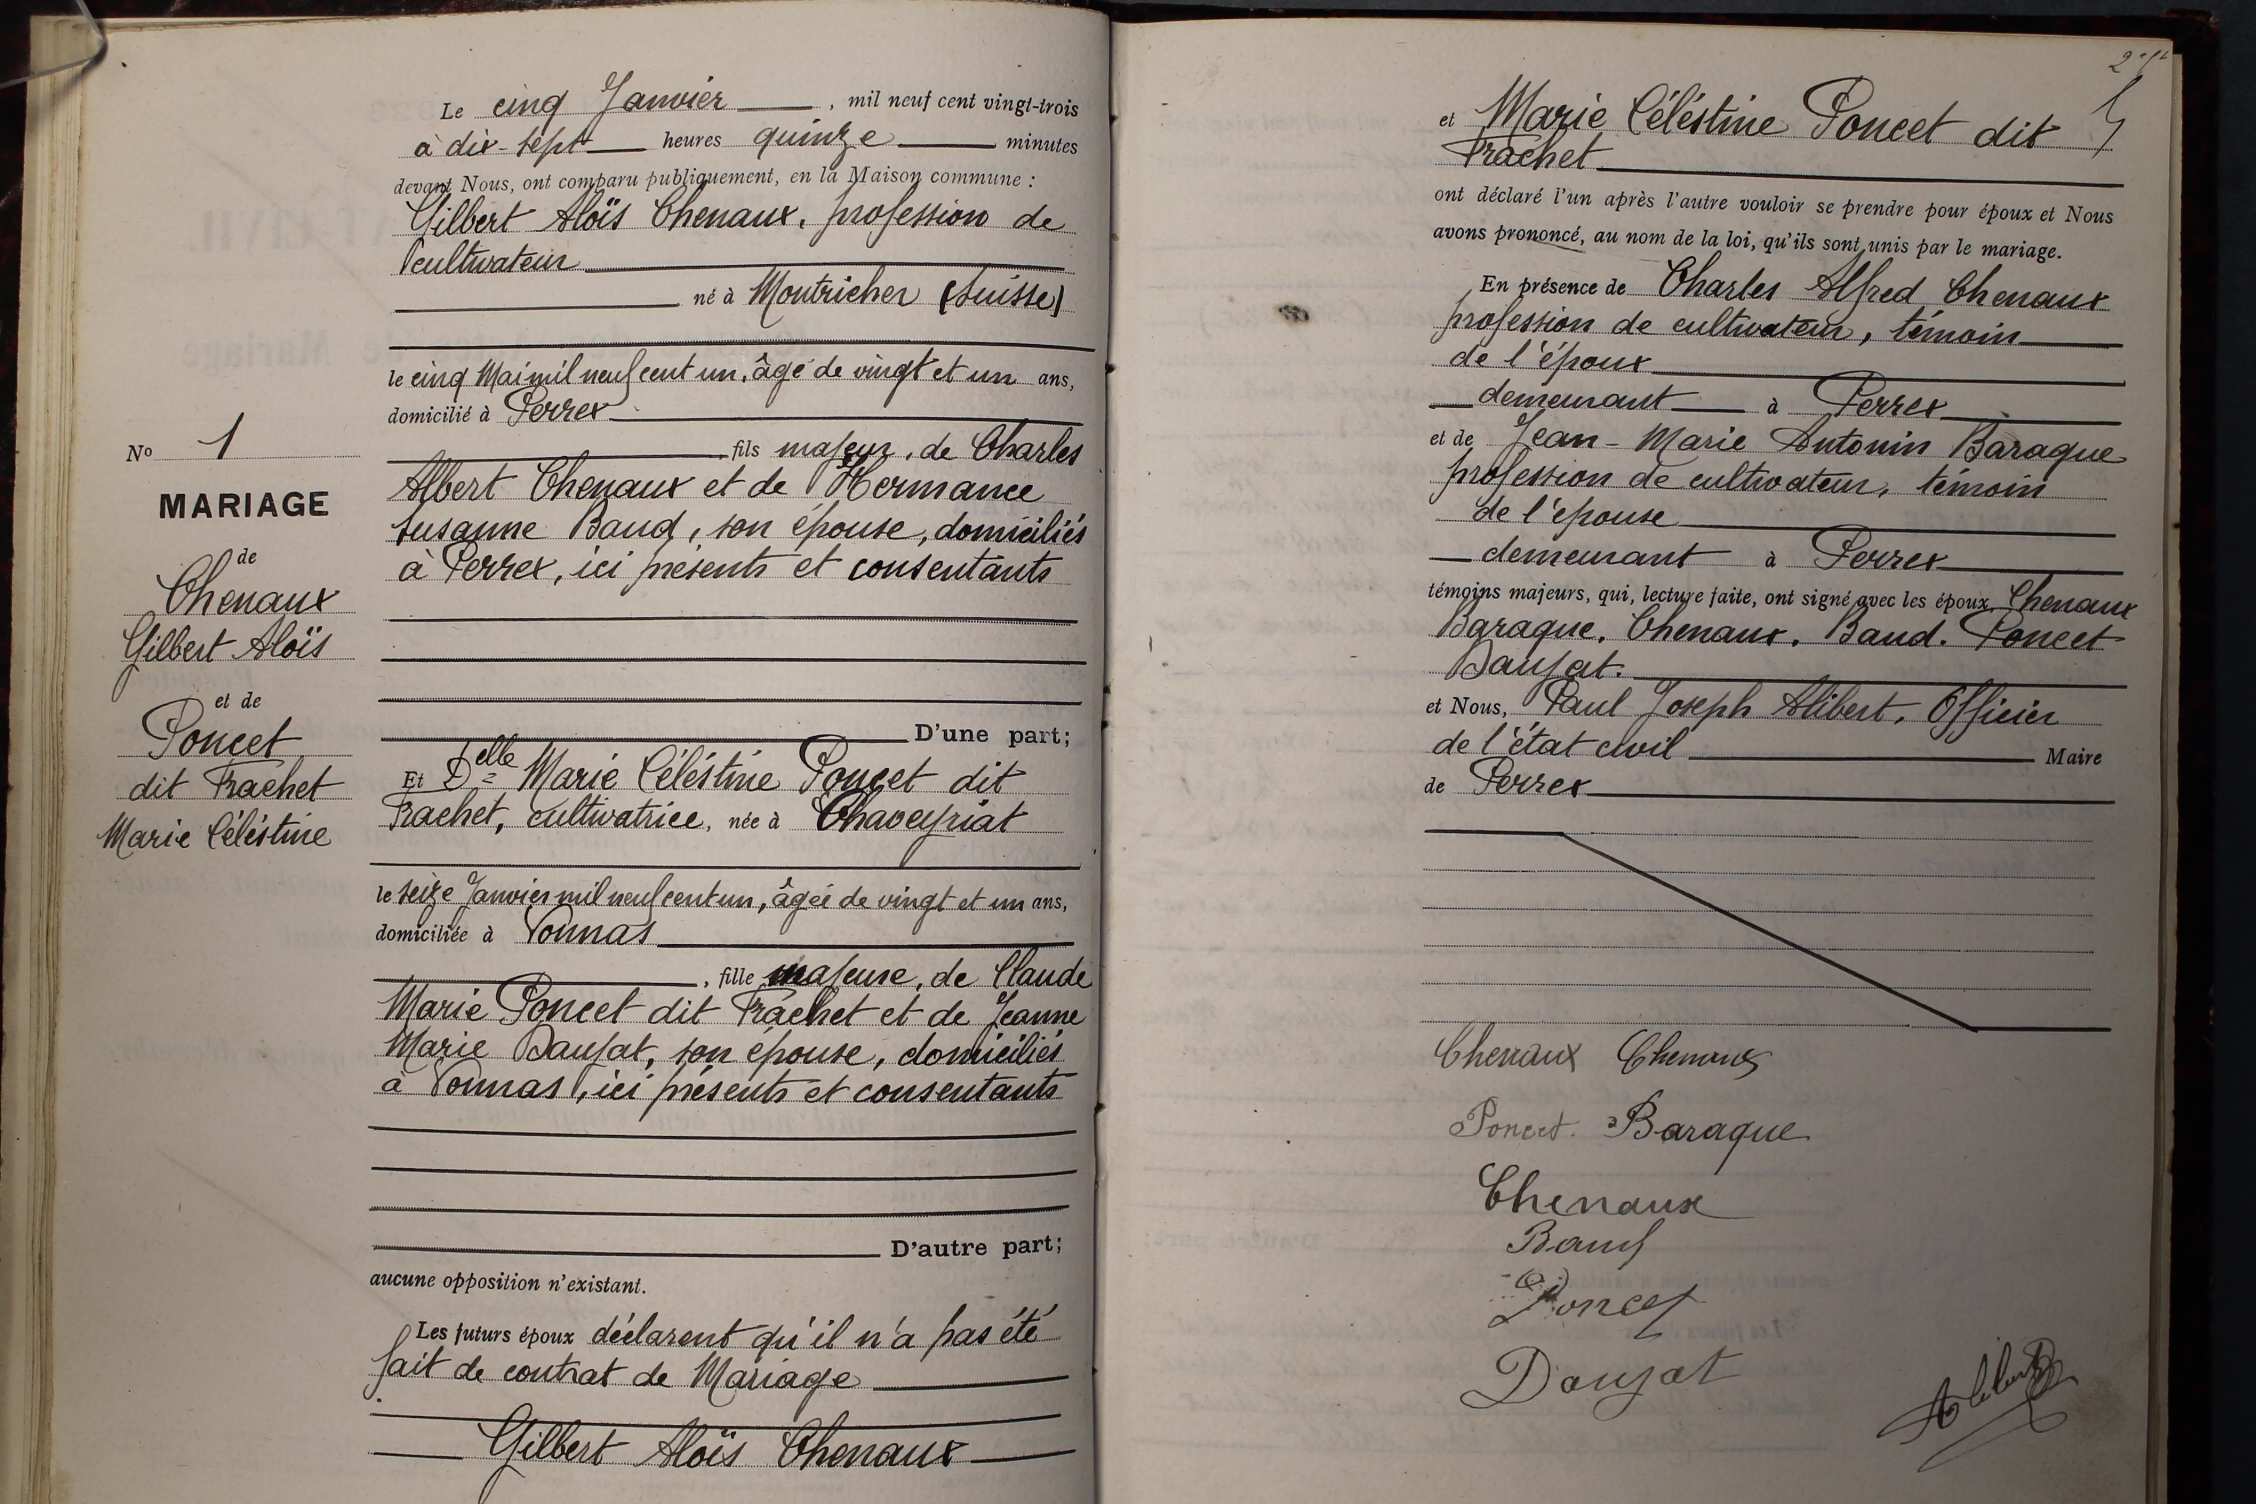 Le cinq Janvier, mil neuf cent vingt-trois
à dix-sept heures quinze minutes
devant Nous, ont comparu publiquement, en la Maison commune :
Gilbert Aloïs Chenaux, profession de
cultivateur
né à Montricher (Suisse)
le cinq Mai mil neuf cent un, âgé de vingt et un ans,
domicilié à Perrex
fils majeur, de Charles
Albert Chenaux et de Hermance
Susanne Baud, son épouse, domiciliés
à Perrex, ici présents et consentants
No 1
MARIAGE
de
Chenaux
Gilbert Aloïs
et de
Poncet
dit Frachet
Marie Céléstine
D'une part;
Et Delle Marie Céléstine Poncet dit
Frachet, cultivatrice, née à Chaveyriat
le seize Janvier mil neuf cent un, âgée de vingt et un ans,
domiciliée à Vonnas
, fille majeure, de Claude
Marie Poncet dit Frachet et de Jeanne
Marie Daujat, son épouse, domiciliés
à Vonnas, ici présents et consentants
D'autre part;
aucune opposition n'existant.
Les futurs époux déclarent qu'il n'a pas été
fait de contrat de Mariage
Gilbert Aloïs Chenaux
et Marie Céléstine Poncet dit
Frachet
ont déclaré l'un après l'autre vouloir se prendre pour époux et Nous
avons prononcé, au nom de la loi, qu'ils sont unis par le mariage.
En présence de Charles Alfred Chenaux
profession de cultivateur, témoin
de l'époux
demeurant à Perrex
et de Jean-Marie Antonin Baraque
profession de cultivateur, témoin
de l'épouse
demeurant à Perrex
témoins majeurs, qui, lecture faite, ont signé avec les époux, Chenaux
Baraque, Chenaux, Baud, Poncet
Daujat.
et Nous, Paul Joseph Alibert, Officier
de l'état civil Maire
de Perrex
Chenaux Chenaux
Poncet Baraque
Chenaux
Baud
Poncet
Daujat
Alibert